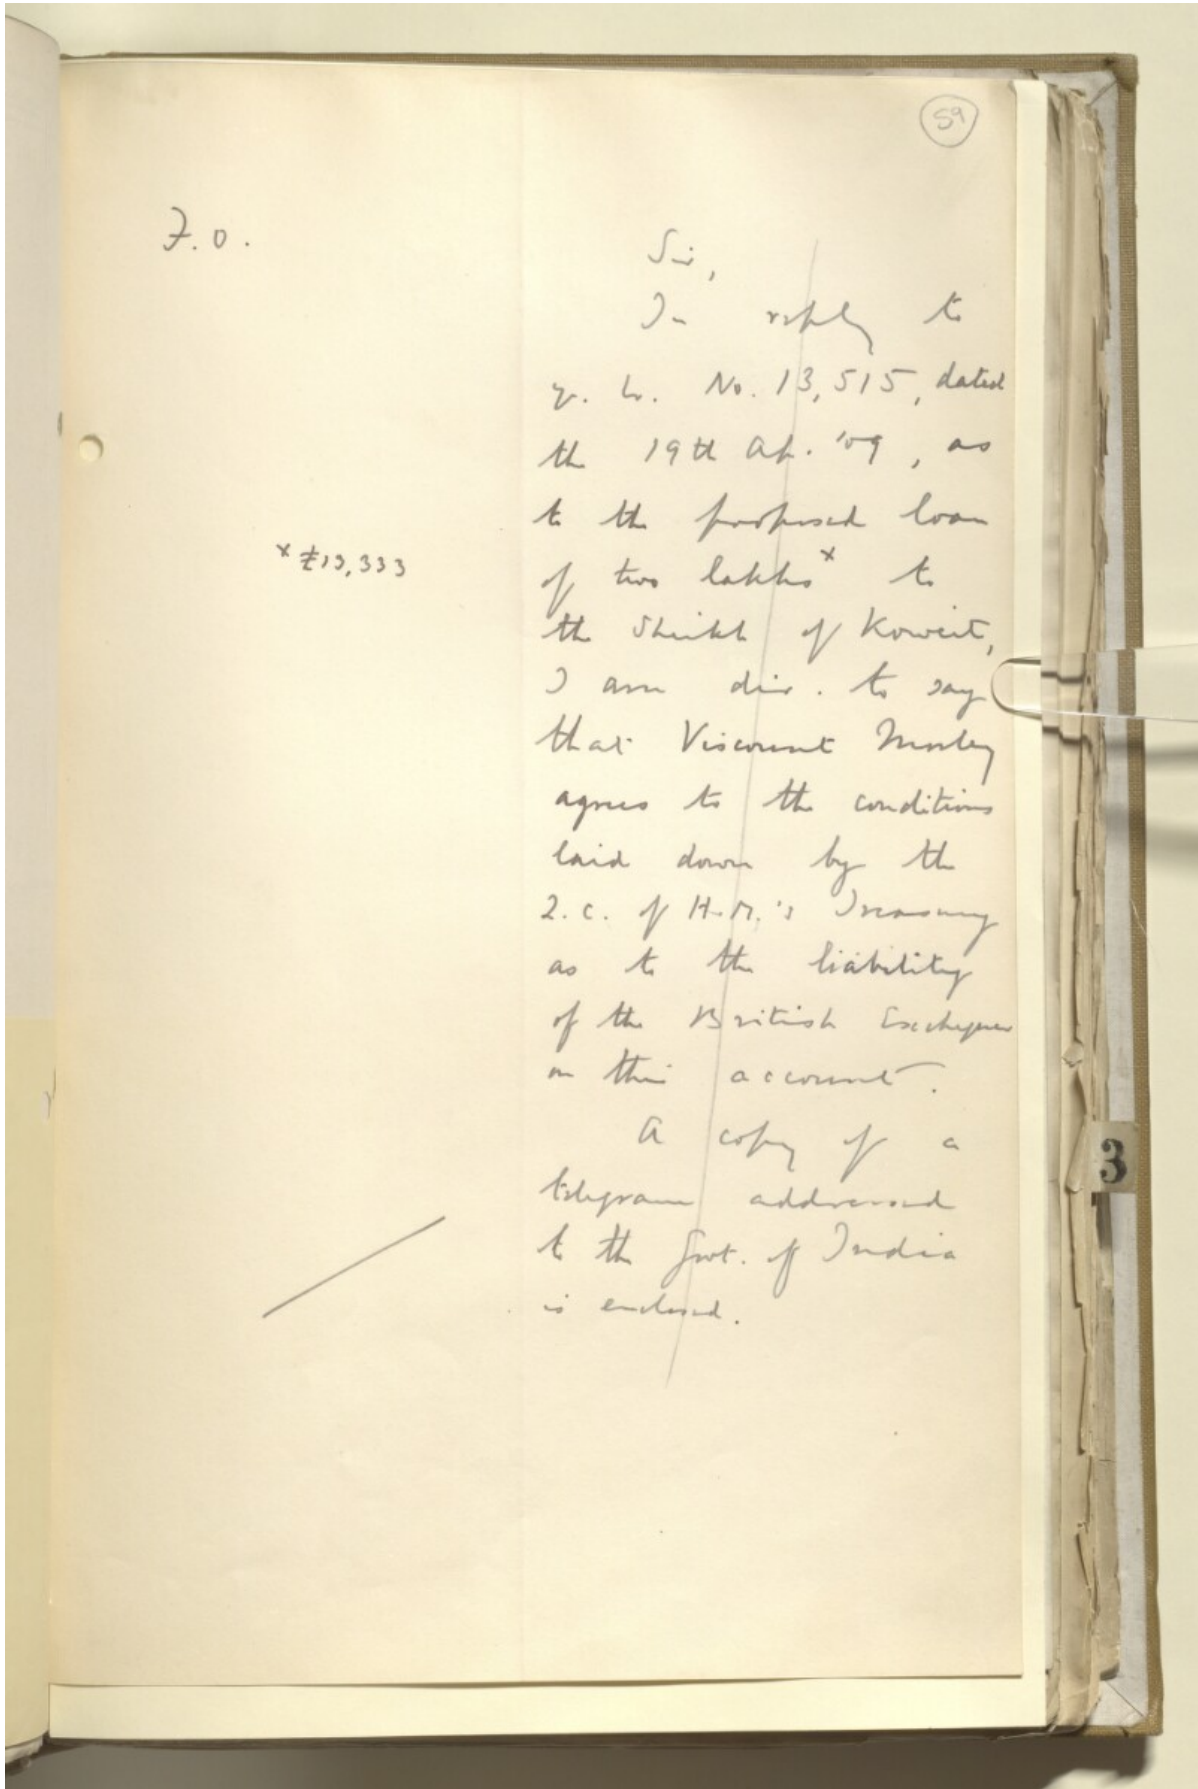 59
F.O.
Sir,
In reply to
yr. lr. No. 13,515, dated
the 19th Ap. '09, as
to the proposed loan
x £13,333
of two lakhs x to
the Sheikh of Koweit,
I am dir. to say
that Viscount Morley
agrees to the conditions
laid down by the
L.C. of H.M.'s Treasury
as to the liability
of the British Exchequer
on this account.
A copy of a
telegram addressed
to the Govt. of India
is enclosed.
3